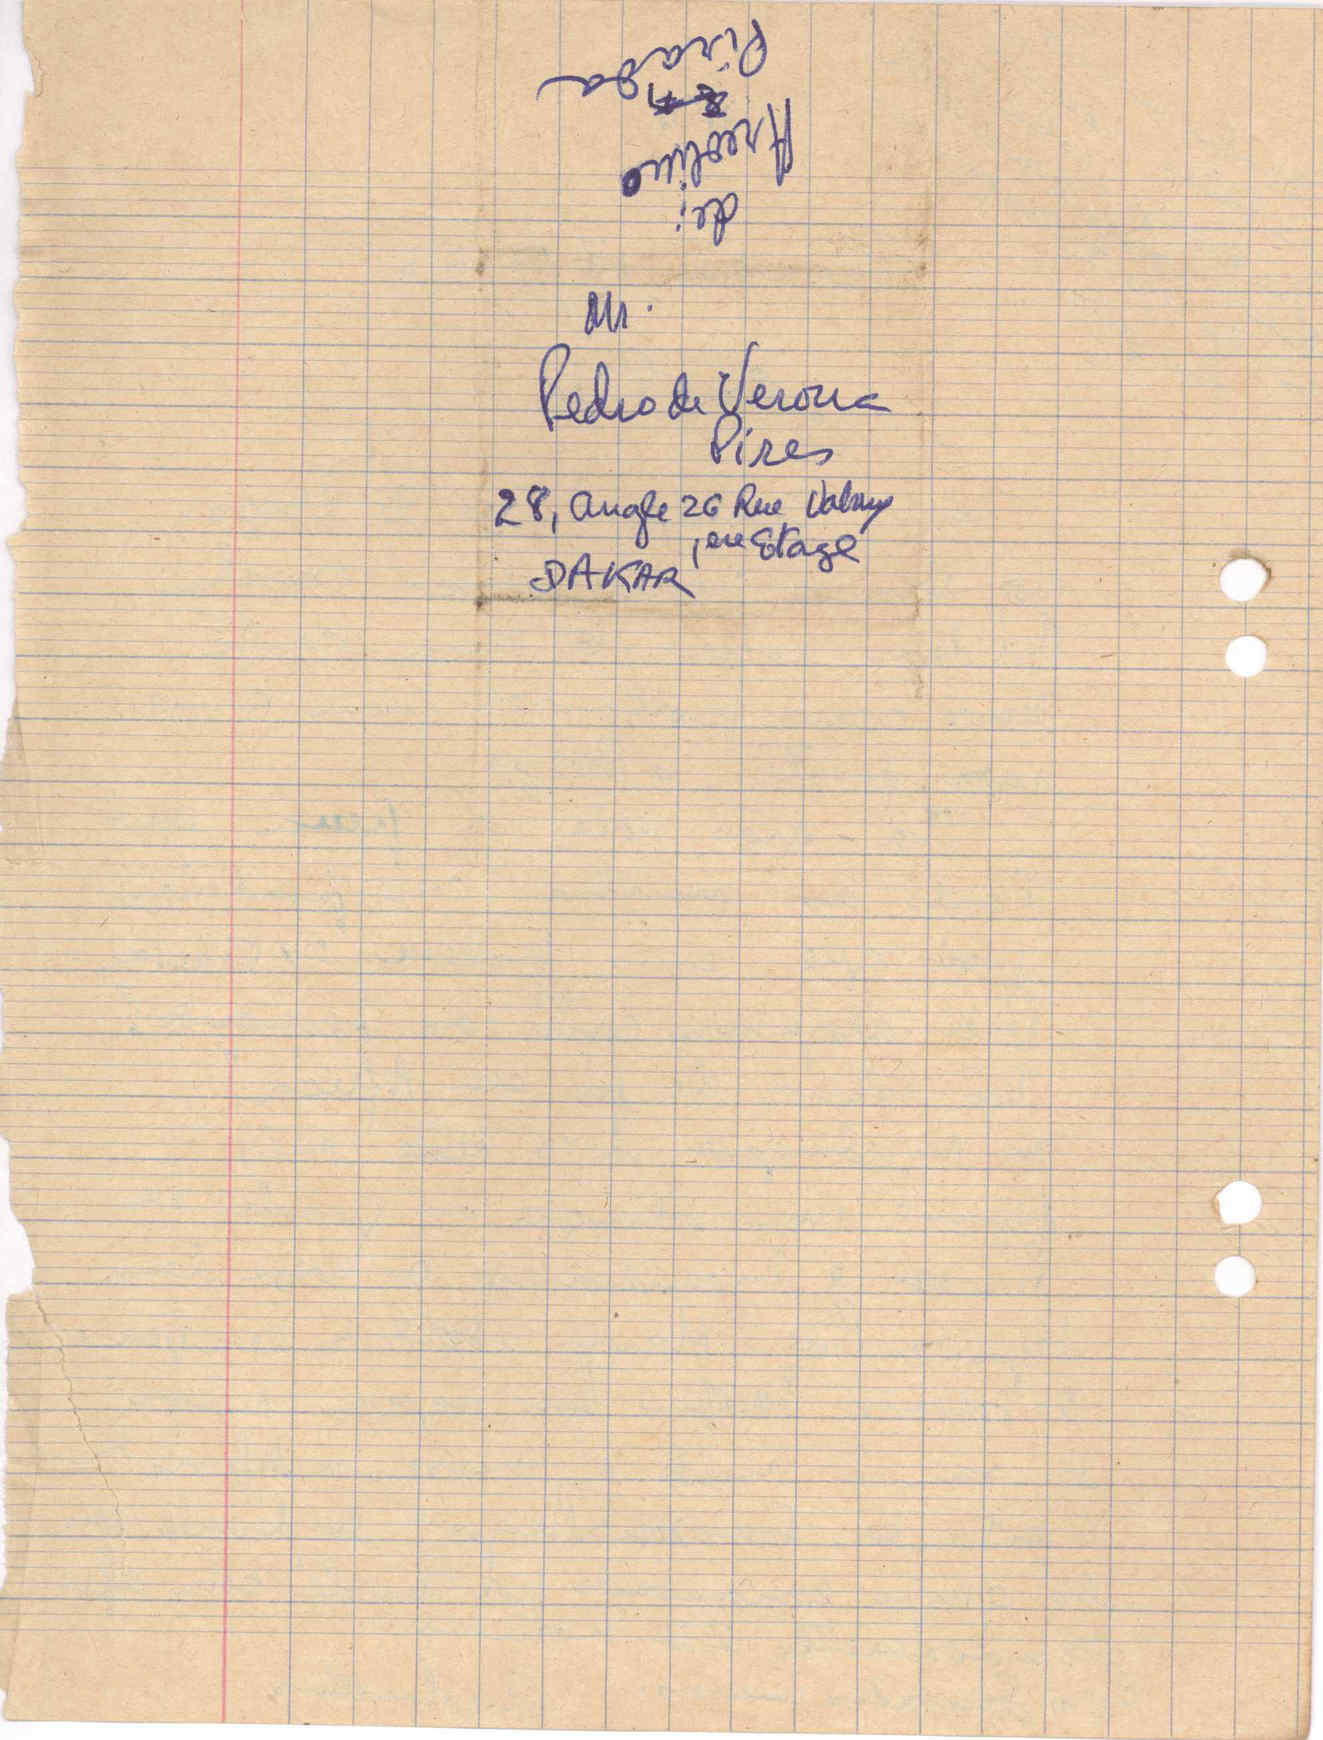 de;
Arcolino
Pirada
Mr.
Pedro de Verona
Pires
28, Angle 26 Rue Valmy
1, ere Etage
DAKAR